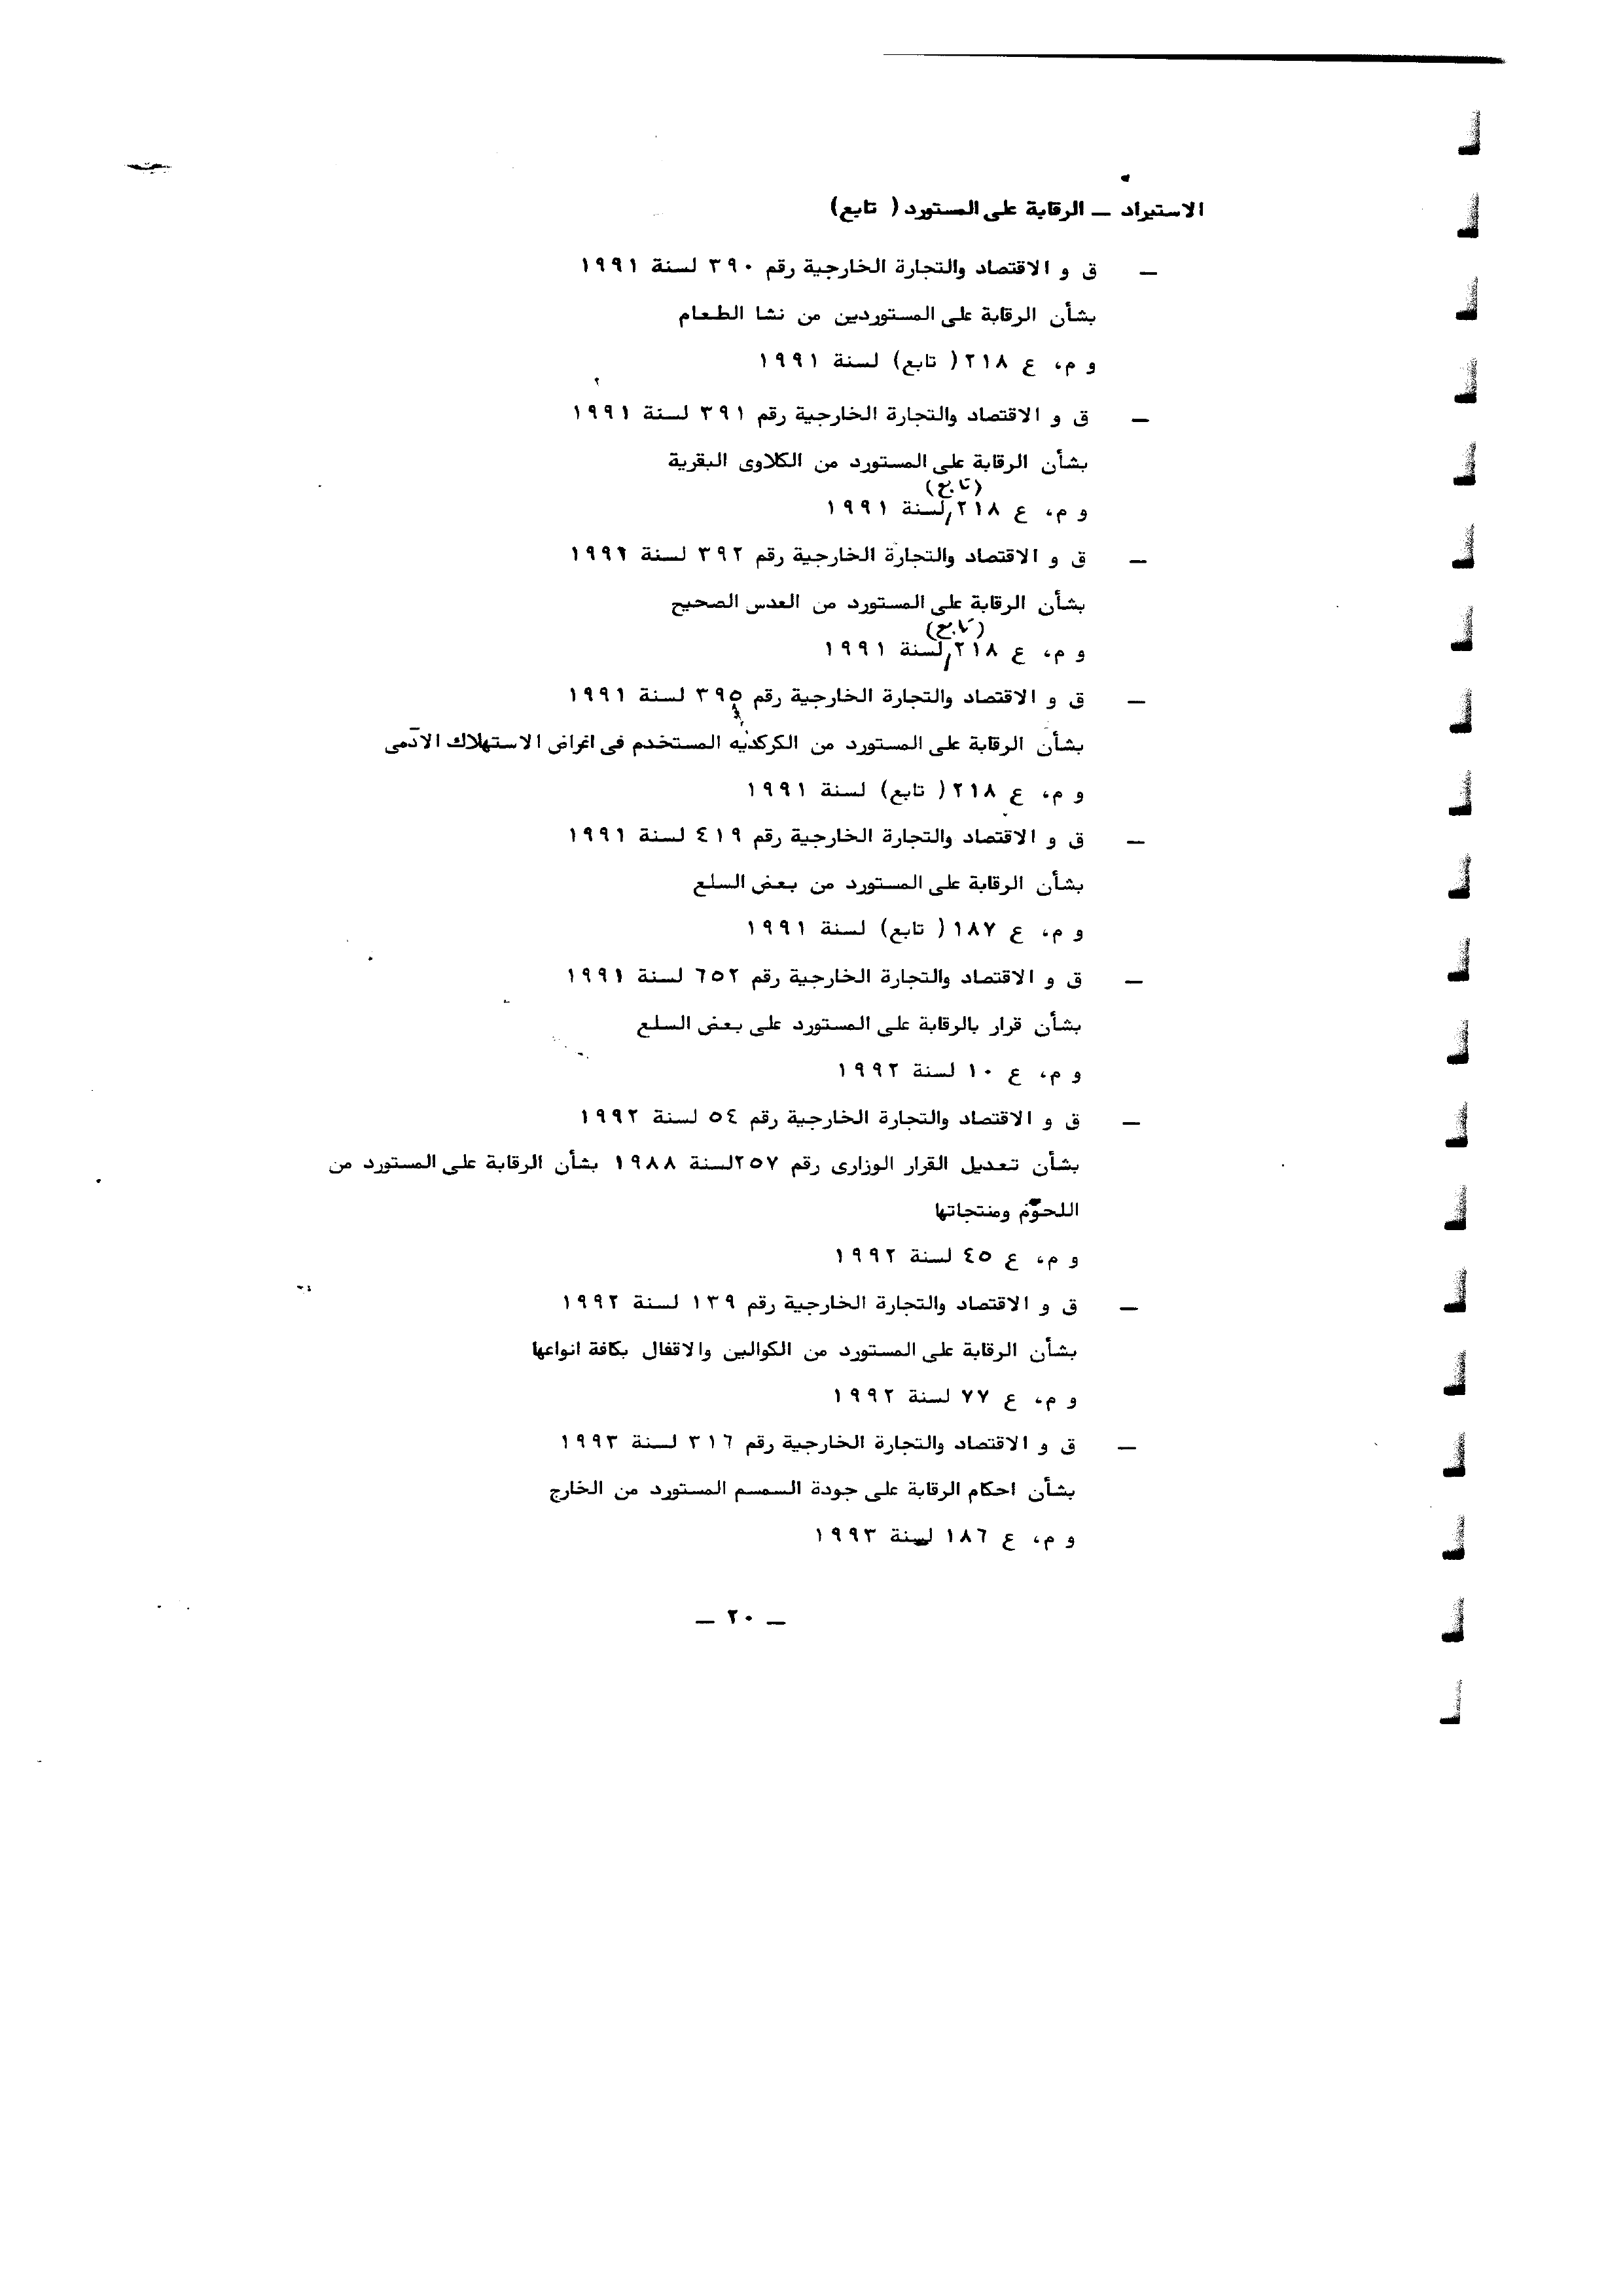 الاستيراد — الرقابة على المستورد ( تابع)
— ق و الاقتصاد والتجارة الخارجية رقم ٣٩٠ لسنة ١٩٩١
بشأن الرقابة على المستوردين من نشا الطعام
و م، ع ٢١٨ ( تابع) لسنة ١٩٩١
— ق و الاقتصاد والتجارة الخارجية رقم ٣٩١ لسنة ١٩٩١
بشأن الرقابة على المستورد من الكلاوى البقرية
(تابع)
و م، ع ٢١٨ لسنة ١٩٩١
— ق و الاقتصاد والتجارة الخارجية رقم ٣٩٢ لسنة ١٩٩١
بشأن الرقابة على المستورد من العدس الصحيح
(تابع)
و م، ع ٢١٨ لسنة ١٩٩١
— ق و الاقتصاد والتجارة الخارجية رقم ٣٩٥ لسنة ١٩٩١
بشأن الرقابة على المستورد من الكركديه المستخدم فى اغراض الاستهلاك الآدمى
و م، ع ٢١٨ ( تابع) لسنة ١٩٩١
— ق و الاقتصاد والتجارة الخارجية رقم ٤١٩ لسنة ١٩٩١
بشأن الرقابة على المستورد من بعض السلع
و م، ع ١٨٧ ( تابع) لسنة ١٩٩١
— ق و الاقتصاد والتجارة الخارجية رقم ٦٥٢ لسنة ١٩٩١
بشأن قرار بالرقابة على المستورد على بعض السلع
و م، ع ١٠ لسنة ١٩٩٢
— ق و الاقتصاد والتجارة الخارجية رقم ٥٤ لسنة ١٩٩٢
بشأن تعديل القرار الوزارى رقم ٢٥٧لسنة ١٩٨٨ بشأن الرقابة على المستورد من
اللحوم ومنتجاتها
و م، ع ٤٥ لسنة ١٩٩٢
— ق و الاقتصاد والتجارة الخارجية رقم ١٣٩ لسنة ١٩٩٢
بشأن الرقابة على المستورد من الكوالين والاقفال بكافة انواعها
و م، ع ٧٧ لسنة ١٩٩٢
— ق و الاقتصاد والتجارة الخارجية رقم ٣١٦ لسنة ١٩٩٣
بشأن احكام الرقابة على جودة السمسم المستورد من الخارج
و م، ع ١٨٦ لسنة ١٩٩٣
— ٢٠ —